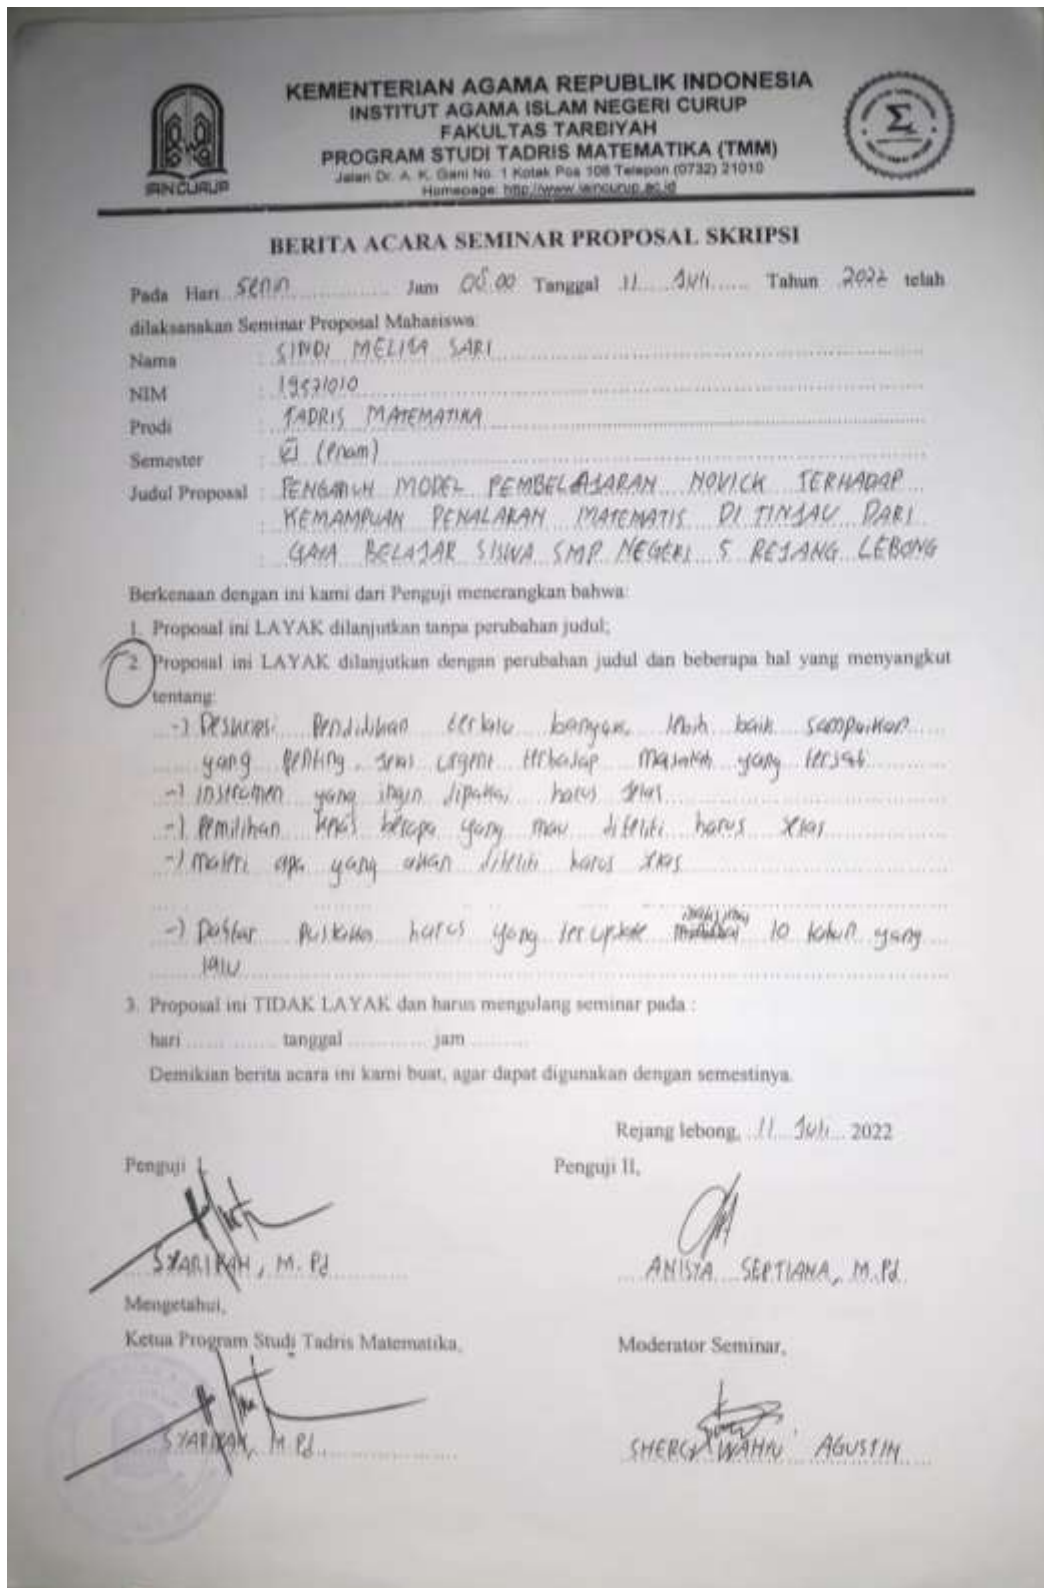 KEMENTERIAN AGAMA REPUBLIK INDONESIA
INSTITUT AGAMA ISLAM NEGERI CURUP
FAKULTAS TARBIYAH
PROGRAM STUDI TADRIS MATEMATIKA (TMM)
Jalan Dr. A. K. Gani No. 1 Kotak Pos 108 Telepon (0732) 21010
Homepage: http://www.iaincurup.ac.id
IAIN CURUP
BERITA ACARA SEMINAR PROPOSAL SKRIPSI
Pada Hari Senin Jam 08.00 Tanggal 11 Juli Tahun 2022 telah
dilaksanakan Seminar Proposal Mahasiswa:
Nama : SINDI MELITA SARI
NIM : 19571010
Prodi : TADRIS MATEMATIKA
Semester : (enam)
Judul Proposal : PENGARUH MODEL PEMBELAJARAN NOVICK TERHADAP
: KEMAMPUAN PENALARAN MATEMATIS DI TINJAU DARI
: GAYA BELAJAR SISWA SMP NEGERI 5 REJANG LEBONG
Berkenaan dengan ini kami dari Penguji menerangkan bahwa:
1. Proposal ini LAYAK dilanjutkan tanpa perubahan judul;
2. Proposal ini LAYAK dilanjutkan dengan perubahan judul dan beberapa hal yang menyangkut
tentang:
-) Deskripsi Pendidikan terlalu banyak, lebih baik sampaikan
yang penting urgent terhadap masalah yang terjadi
-) instrumen yang ingin dipakai harus jelas
-) Pemilihan kelas berapa yang mau diteliti harus jelas
-) materi apa yang akan diteliti harus jelas
-) Daftar pustaka harus yang terupdate 10 tahun yang
lalu
3. Proposal ini TIDAK LAYAK dan harus mengulang seminar pada :
hari tanggal jam
Demikian berita acara ini kami buat, agar dapat digunakan dengan semestinya.
Rejang lebong, 11 Juli 2022
Penguji I, Penguji II,
SYARIPAH, M.Pd ANISYA SEPTIANA, M.Pd
Mengetahui,
Ketua Program Studi Tadris Matematika, Moderator Seminar,
SYARIPAH, M.Pd SHERGY WAHYU AGUSTIN